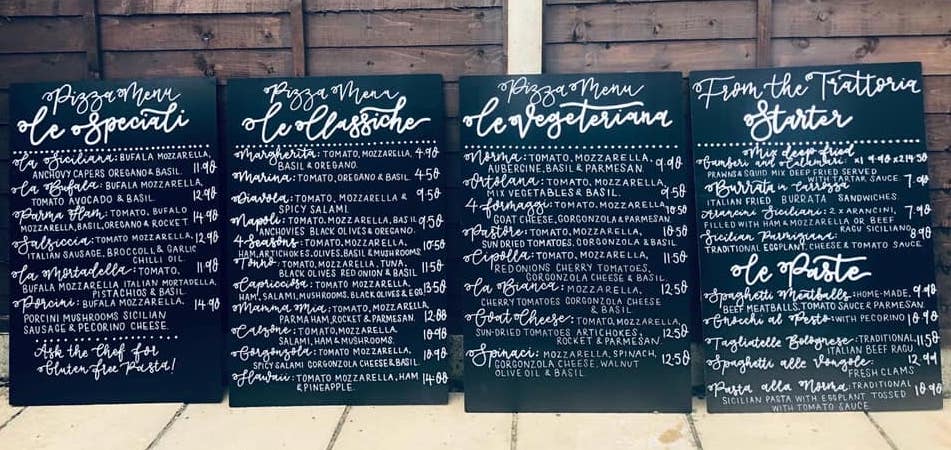 Pizza Menu
Le Speciali
La Siciliana: BUFALA MOZZARELLA,
ANCHOVY CAPERS OREGANO & BASIL. 11.90
La Bufala: BUFALA MOZZARELLA, 12.90
TOMATO AVOCADO & BASIL
Parma Ham: TOMATO, BUFALO 14.90
MOZZARELLA, BASIL, OREGANO & ROCKET
Salsiccia: TOMATO MOZZARELLA, 12.90
ITALIAN SAUSAGE, BROCCOLI & GARLIC
CHILLI OIL.
La Mortadella: TOMATO, 11.90
BUFALA MOZZARELLA ITALIAN MORTADELLA,
PISTACHIOS & BASIL.
Porcini: BUFALA MOZZARELLA, 14.90
PORCINI MUSHROOMS SICILIAN
SAUSAGE & PECORINO CHEESE.
Ask the Chef for
Gluten free Pasta!
Pizza Menu
Le Classiche
Margherita: TOMATO, MOZZARELLA, 4.90
BASIL & OREGANO.
Marina: TOMATO, OREGANO & BASIL 4.50
Diavola: TOMATO, MOZZARELLA & 9.50
SPICY SALAMI.
Napoli: TOMATO, MOZZARELLA, BASIL 9.50
ANCHOVIES BLACK OLIVES & OREGANO.
4 Seasons: TOMATO, MOZZARELLA, 10.50
HAM, ARTICHOKES, OLIVES, BASIL & MUSHROOMS
Tonno: TOMATO, MOZZARELLA, TUNA, 11.50
BLACK OLIVES RED ONION & BASIL
Capricciosa: TOMATO, MOZZARELLA, 13.50
HAM, SALAMI, MUSHROOMS, BLACK OLIVES & EGG
Mamma Mia: TOMATO, MOZZARELLA, 12.00
PARMA HAM, ROCKET & PARMESAN.
Calzone: TOMATO, MOZZARELLA, 10.90
SALAMI, HAM & MUSHROOMS.
Gorgonzola: TOMATO, MOZZARELLA, 10.90
SPICY SALAMI GORGONZOLA CHEESE & BASIL
Hawaii: TOMATO MOZZARELLA, HAM 14.00
& PINEAPPLE.
Pizza Menu
Le Vegeteriana
Norma: TOMATO, MOZZARELLA, 9.90
AUBERGINE, BASIL & PARMESAN.
Ortolana: TOMATO, MOZZARELLA,
MIX VEGETABLES & BASIL. 9.50
4 formaggi: TOMATO, MOZZARELLA, 10.50
GOAT CHEESE, GORGONZOLA & PARMESAN
Pastore: TOMATO, MOZZARELLA, 10.50
SUN DRIED TOMATOES, GORGONZOLA & BASIL
Cipolla: TOMATO, MOZZARELLA, 11.50
RED ONIONS CHERRY TOMATOES,
GORGONZOLA CHEESE & BASIL
La Bianca: MOZZARELLA, 12.50
CHERRY TOMATOES GORGONZOLA CHEESE
& BASIL
Goat Cheese: TOMATO, MOZZARELLA,
SUN-DRIED TOMATOES ARTICHOKES, 12.50
ROCKET & PARMESAN.
Spinaci: MOZZARELLA, SPINACH, 12.50
GORGONZOLA CHEESE, WALNUT
OLIVE OIL & BASIL
From the Trattoria
Starter
Mix deep fried
Gamberi and Calamari: x1 9.90 x2 14.50
PRAWNS & SQUID MIX DEEP FRIED SERVED
WITH TARTAR SAUCE
Burrata in Carrozza 7.90
ITALIAN FRIED BURRATA SANDWICHES.
Arancini Siciliani: 2 x ARANCINI, 7.90
FILLED WITH HAM & MOZZARELLA OR BEEF
RAGU SICILIANO
Sicilian Parmigiana: 8.90
TRADITIONAL EGGPLANT, CHEESE & TOMATO SAUCE
Le Paste
Spaghetti Meatballs: HOME-MADE, 9.90
BEEF MEATBALLS, TOMATO SAUCE & PARMESAN.
Gnocchi al Pesto: WITH PECORINO 10.90
Tagliatelle Bolognese: TRADITIONAL 11.50
ITALIAN BEEF RAGU.
Spaghetti alle Vongole: 12.90
FRESH CLAMS
Pasta alla Norma: TRADITIONAL 10.90
SICILIAN PASTA WITH EGGPLANT TOSSED
WITH TOMATO SAUCE